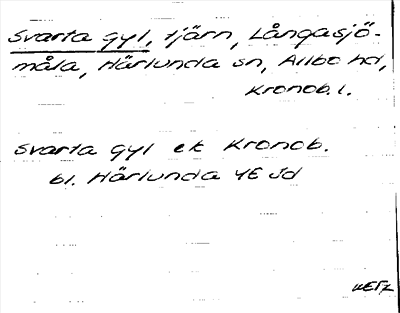 Svarta gyl, tjärn, Långasjö-
måla, Härlunda sn, Allbo hd,
Kronob. l.
Svarta gyl ek Kronob.
bl. Härlunda 4E Jd